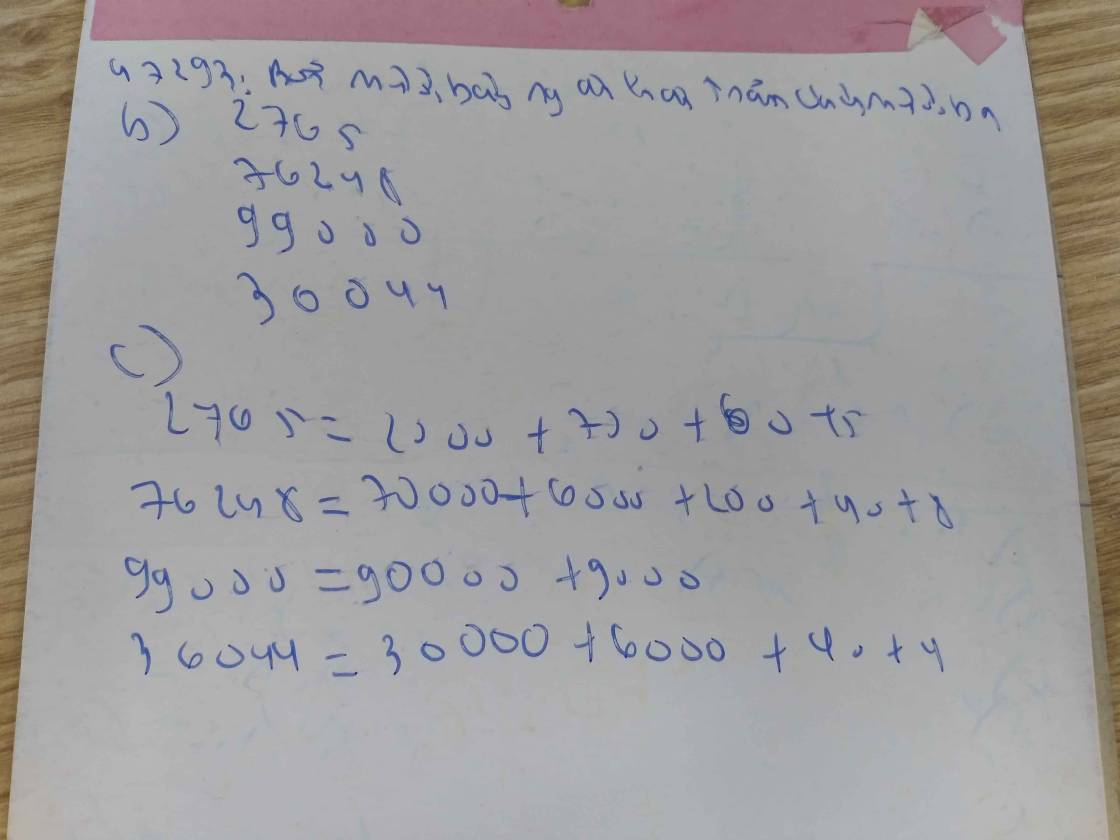 47293: Bốn mươi bảy nghìn hai trăm chín mươi ba
b) 2765
76248
99000
30044
c)
2765 = 2000 + 700 + 60 + 5
76248 = 70000 + 6000 + 200 + 40 + 8
99000 = 90000 + 9000
36044 = 30000 + 6000 + 40 + 4